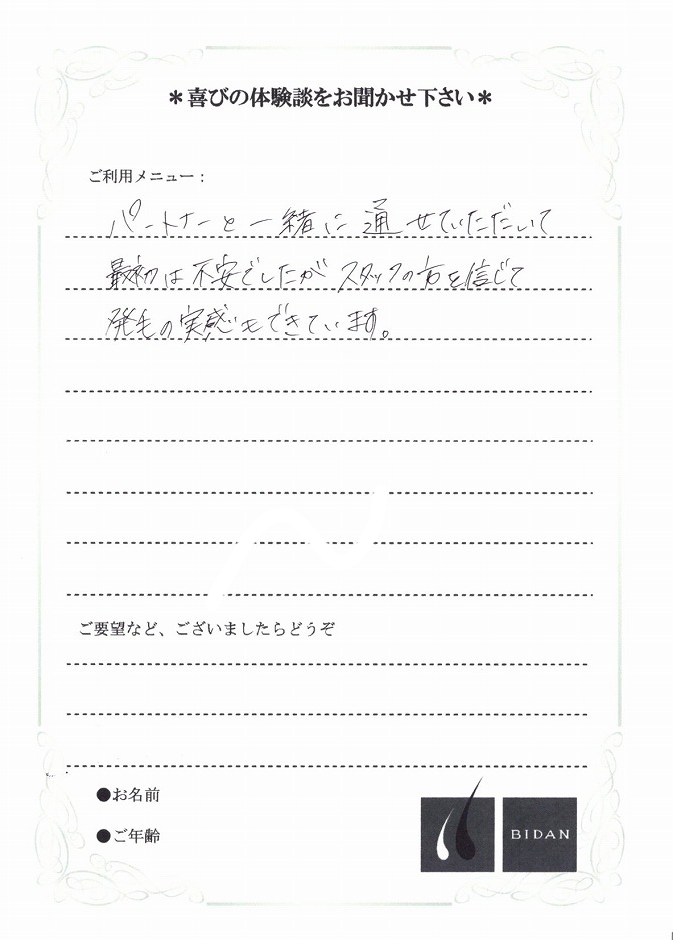 ＊喜びの体験談をお聞かせ下さい＊
ご利用メニュー：
パートナーと一緒に通せていただいて
最初は不安でしたがスタッフの方を信じて
発毛の実感もできています。
ご要望など、ございましたらどうぞ
●お名前
●ご年齢
BIDAN